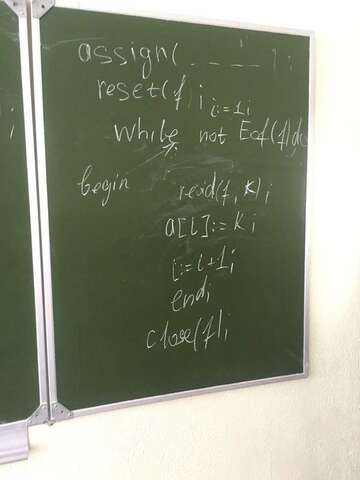 assign( _ _ ' _ );
reset(f); i:=1;
while not Eof(f) do
begin read(f, k);
a[i]:=k;
i:=i+1;
end;
close(f);